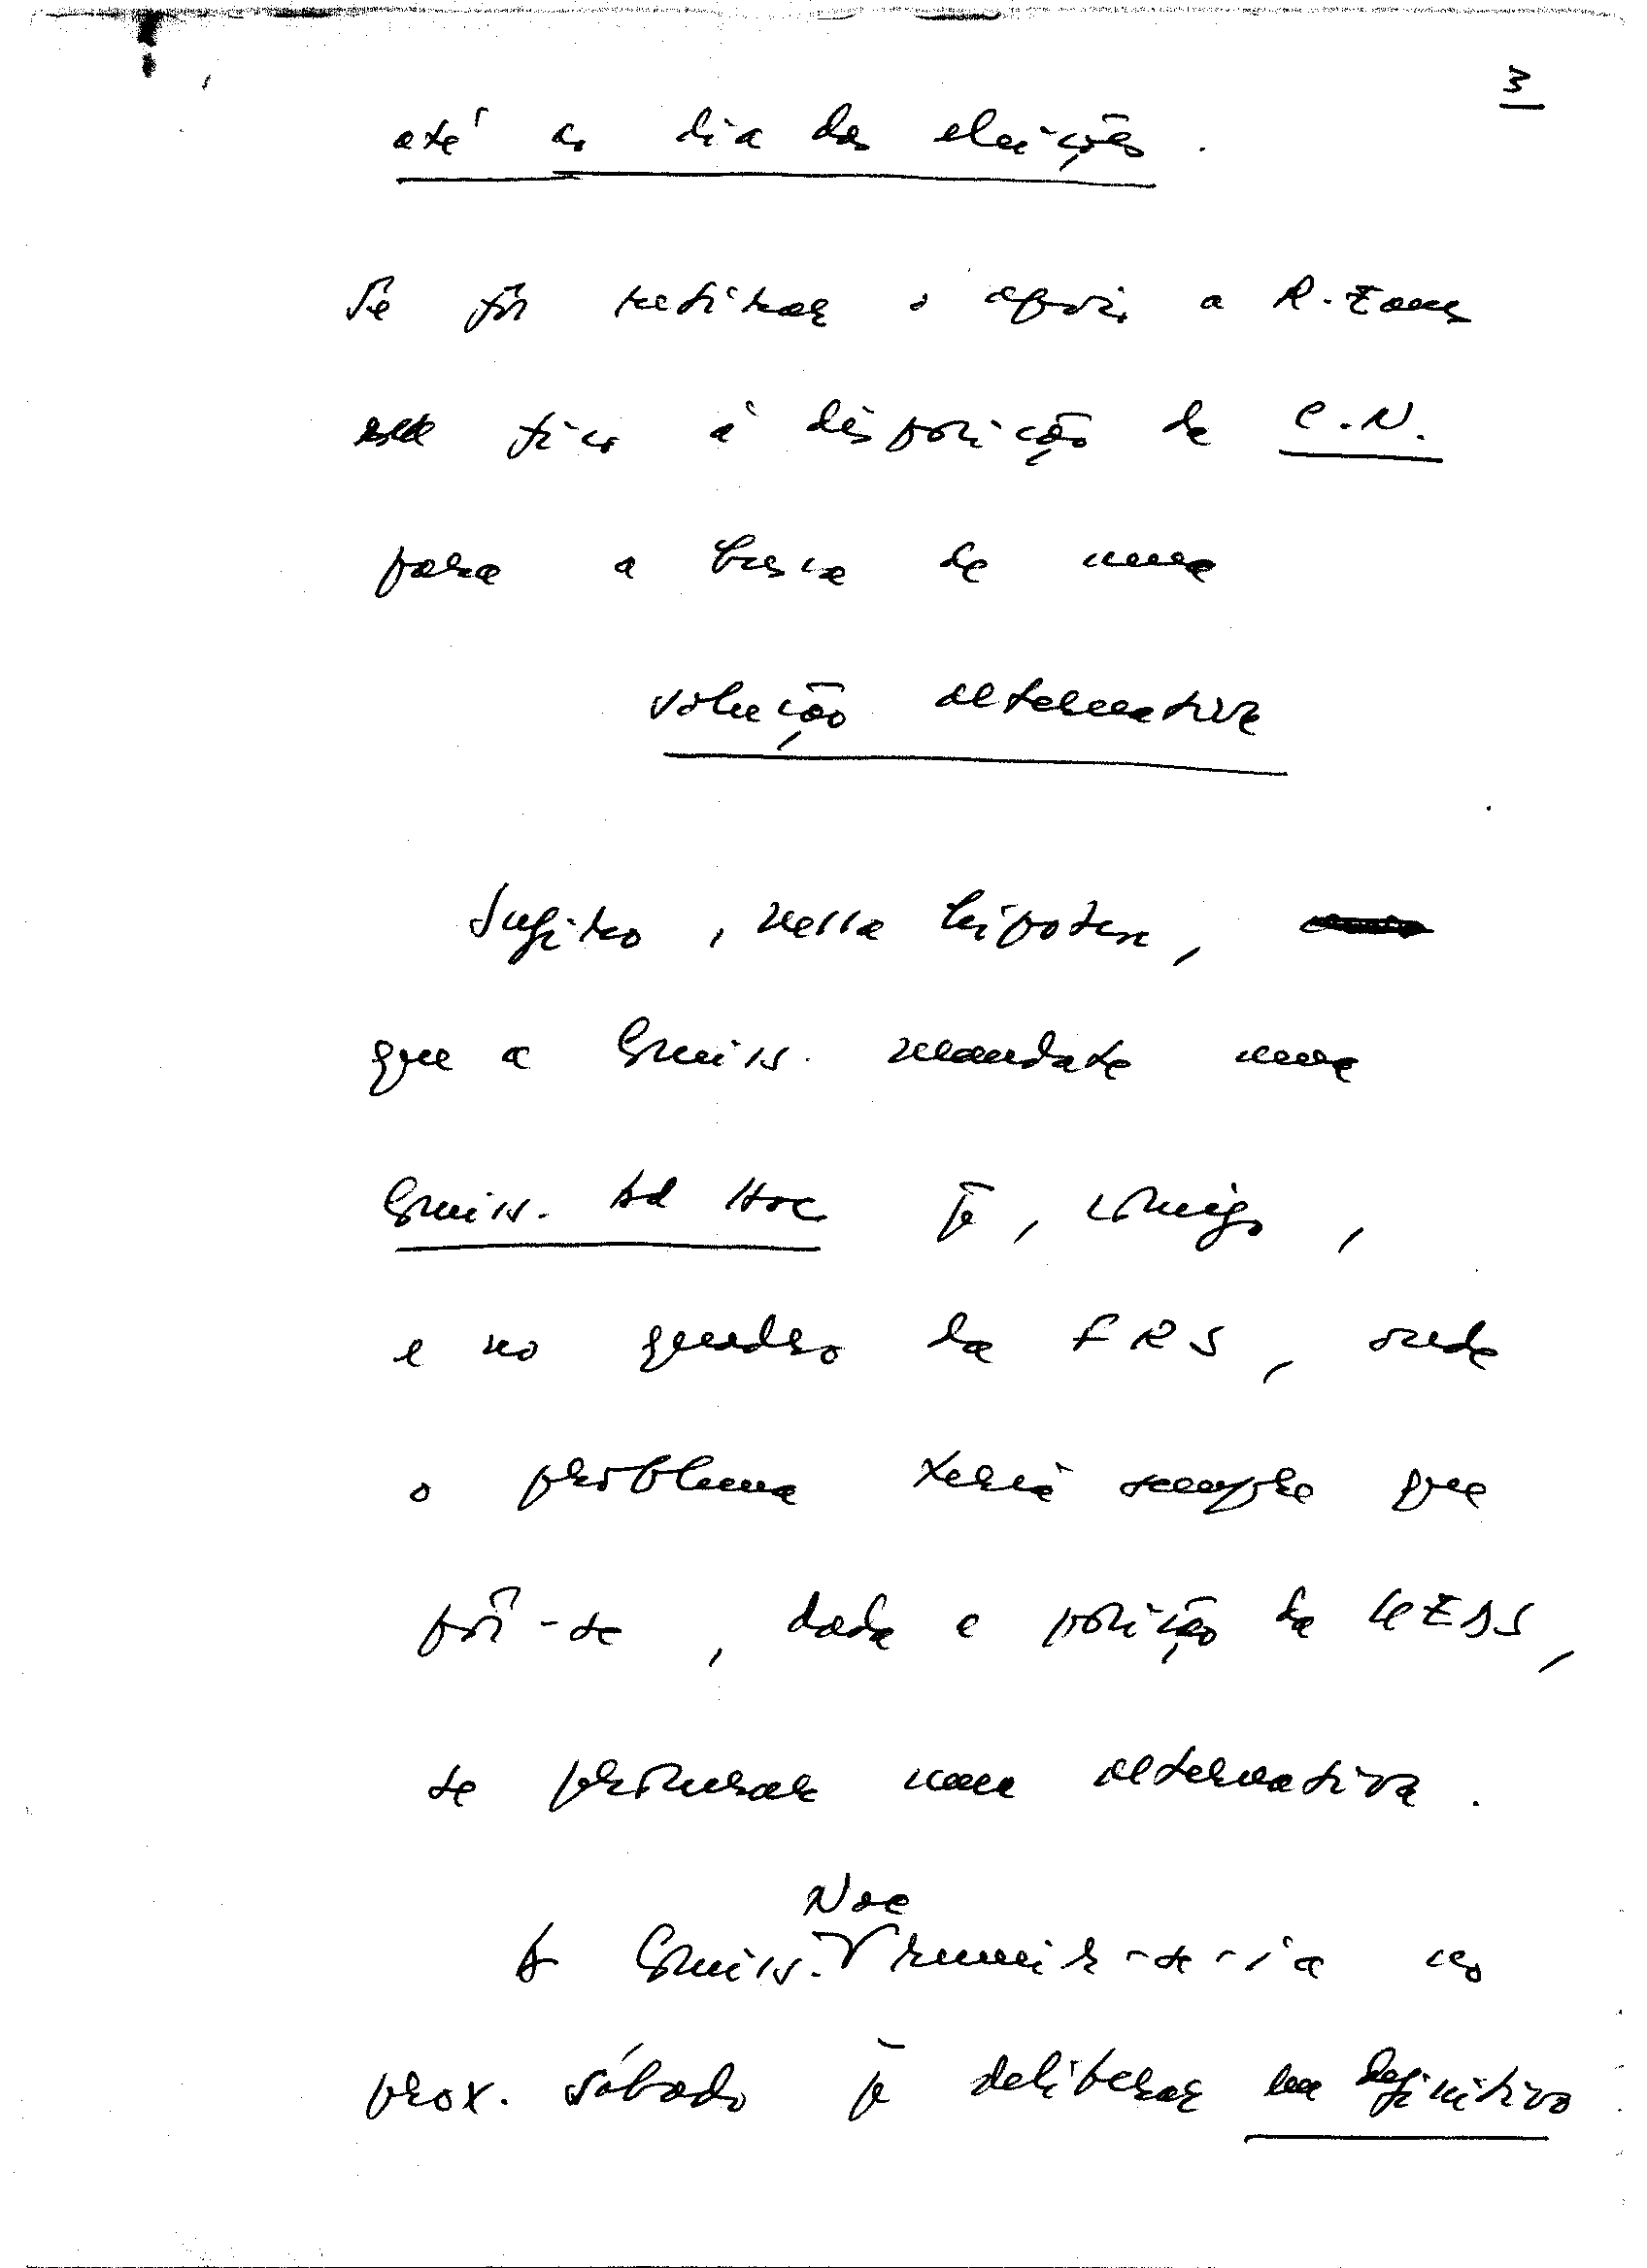 3
até ao dia das eleições.
Se fôr retirar o apoio a R. Eanes
fico à disposição da C.N.
para a busca de uma
solução alternativa
Sugiro, nessa hipotese,
que a Comiss. mandate uma
Comiss. Ad Hoc p̃, comigo,
e no quadro da FRS, onde
o problema teria sempre que
pôr-se, dada a posição da UEDS,
se procurar uma alternativa.
Nac
A Comiss. reunir-se-ia no
prox. sábado p̃ deliberar em definitivo